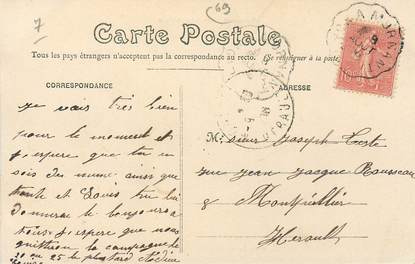 7
69
Carte Postale
Tous les pays étrangers n'acceptent pas la correspondance au recto. (Se renseigner à la poste)
CORRESPONDANCE
ADRESSE
Je vais très bien
pour le moment et
j espere que tu en
sois des meme ainsi que
tante et Louis tu leur
donneras le bonjour a
tous j espere que nous
quitterons la campagne le
20 ou 25 le plus tard
Monsieur Joseph Teste
rue jean jacque Rousseau
8 Montpellier
Herault